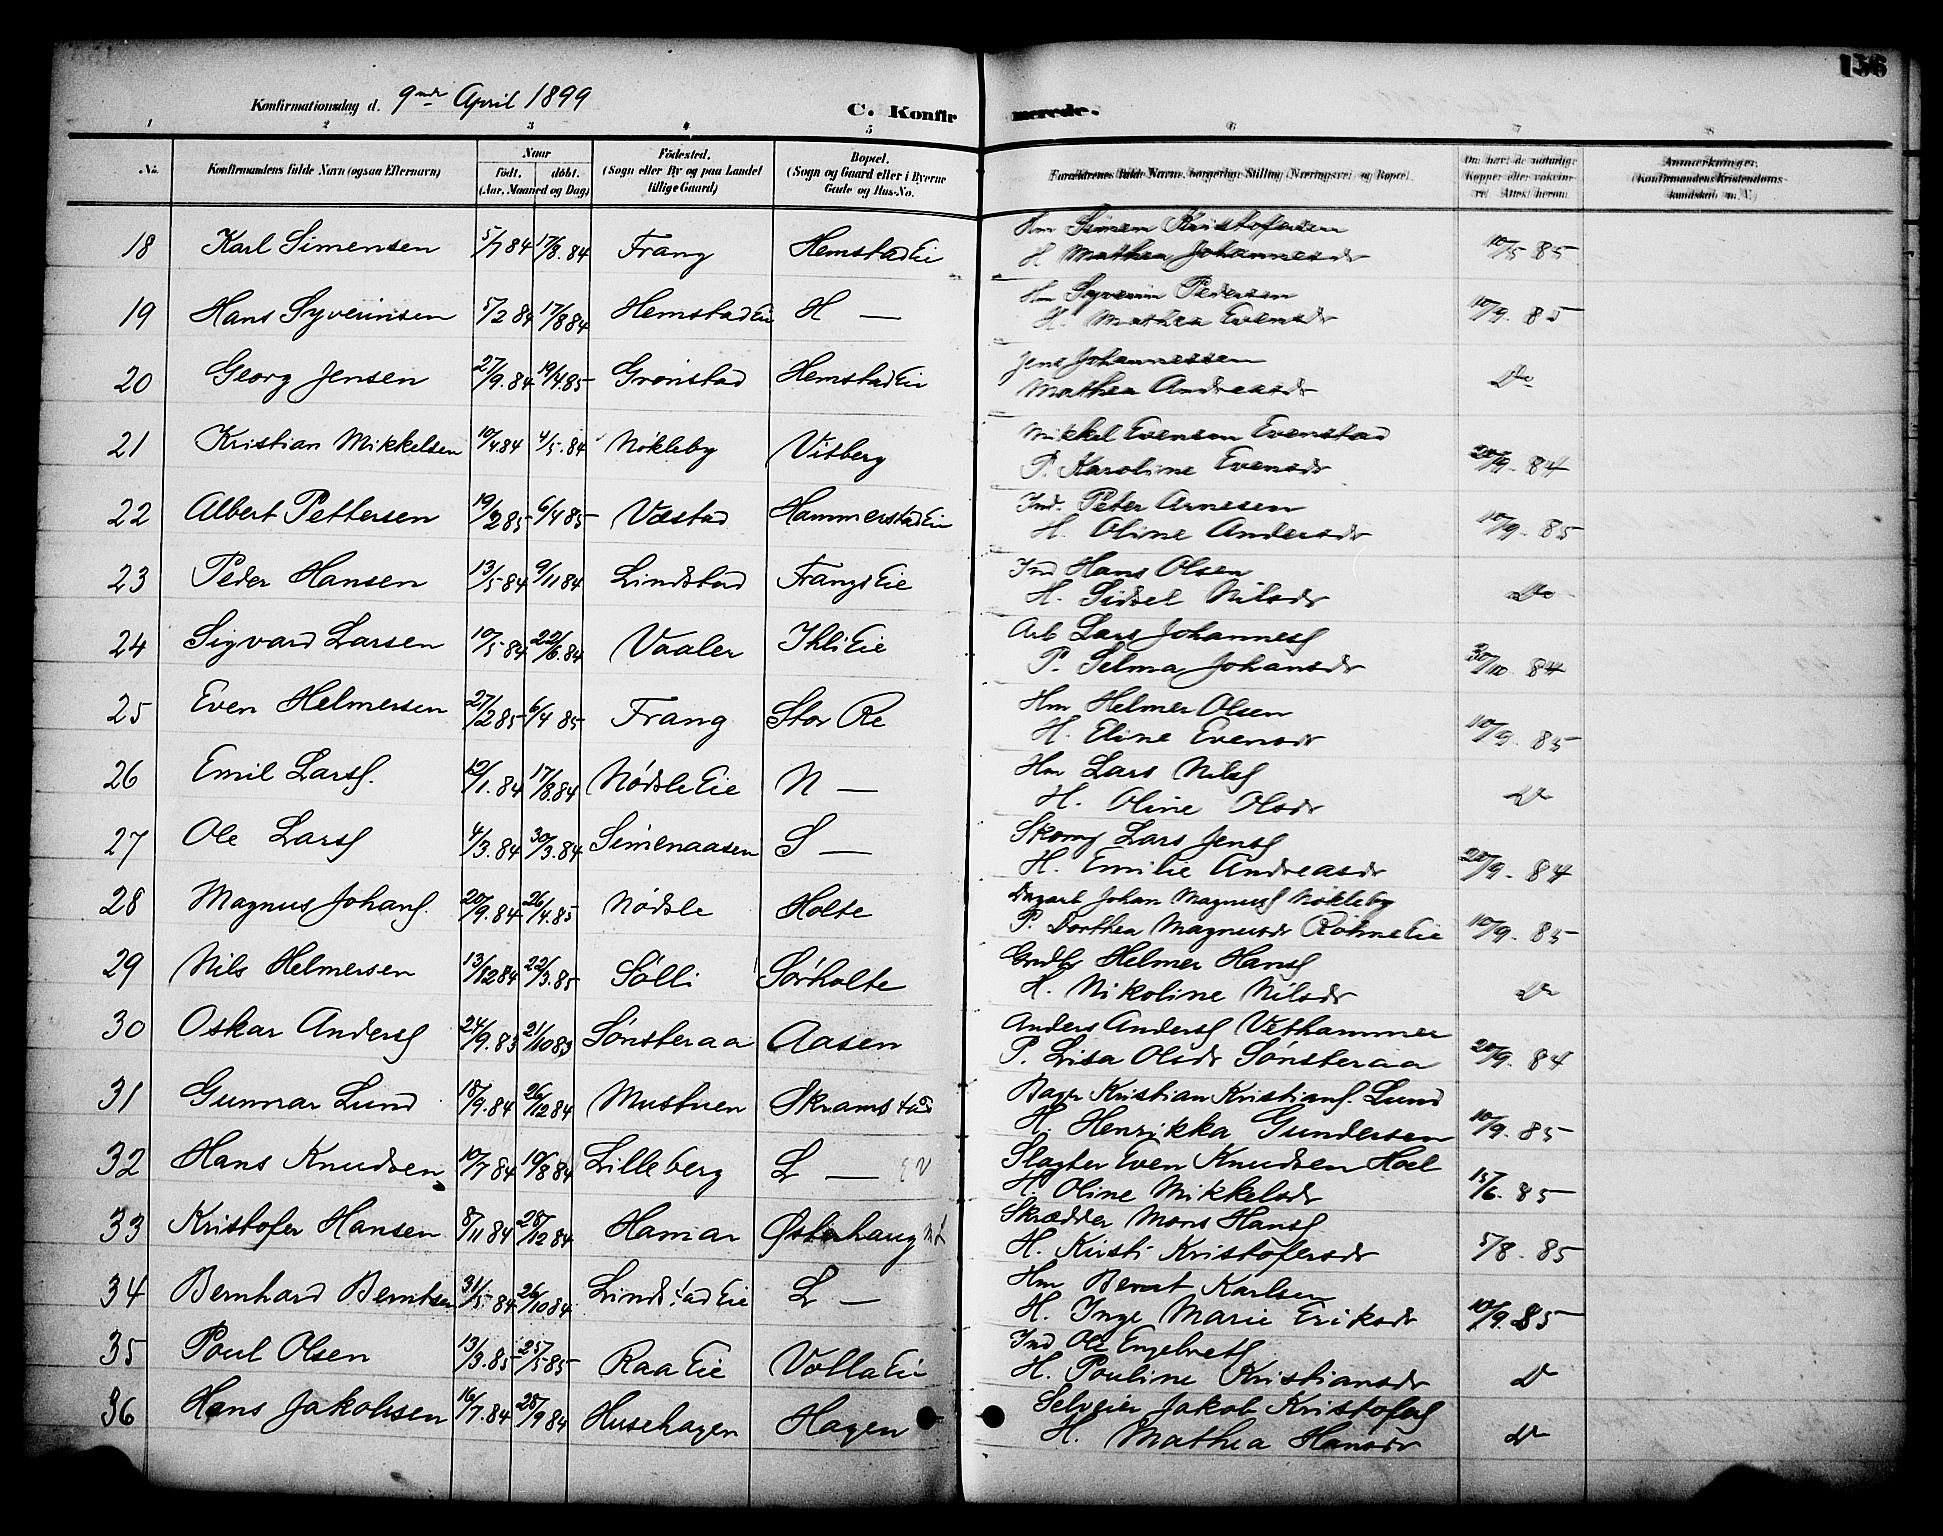 156
Konfirmationsdag d. 9nde April 1899
C. Konfirmerede.
1 2 3 4 5 6 7 8
No. Konfirmandens fulde Navn (ogsaa Efternavn) Naar født. døbt. (Aar, Maaned og Dag) Födested. (Sogn eller By og paa Landet tillige Gaard) Bopæl. (Sogn og Gaard eller i Byerne Gade og Hus-No. Forældrenes fulde Navne, borgerlige Stilling (Næringsvei) og Bopæl. Om havt de naturlige Kopper eller vaksineret. Attest herom. Anmærkninger. (Konfirmandens Kristendomskundskab m. V.)
18 Karl Simensen 5/7 84 17/8. 84 Frang Hemstad Eie Hm Simen Kristofersen 10/5 85
H Mathea Johannesdr
19 Hans Syverinsen 5/2 84 17/8 84 Hemstad Eie H — Hm Syverin Pedersen 10/9. 85
H. Mathea Evensdr
20 Georg Jensen 27/9. 84 19/4 85 Grønstad Hemstad Eie Jens Johannessen Do
Mathea Andreasdr
21 Kristian Mikkelsen 10/4 84 4/5. 84 Nökleby Vitberg Mikkel Evensen Evenstad 20/9. 84
P. Karoline Evensdr
22 Albert Pettersen 19/2 85 6/4 85 Væstad Hammerstad Eie Ind. Peter Arnesen 10/9. 85
H. Oline Andersdr
23 Peder Hansen 13/5 84 9/11 84 Lindstad Frangs Eie Ind Hans Olsen Do
H. Sidsel Nilsdr
24 Sigvard Larsen 10/5. 84 22/6. 84 Vaaler Ihle Eie Arb Lars Johannesf 30/10. 84
P. Selma Johansdr
25 Even Helmersen 27/2 85 6/4 85 Frang Stor Re Hm Helmer Olsen 10/9. 85
H. Eline Evensdr
26 Emil Larsf. 12/1. 84 17/8. 84 Nødsle Eie N — Hm Lars Nilsf Do
H. Oline Olsdr
27 Ole Larsf 4/3. 84 30/3. 84 Simenaasen S — Skomg Lars Jensf 20/9. 84
H. Emilie Andreasdr
28 Magnus Johansf. 20/9. 84 26/4. 85 Nødsle Holte Dagarb Johan Magnusf Nökleby 10/9. 85
P. Dorthea Magnusdr Röhne Eie
29 Nils Helmersen 13/12 84 22/3. 85 Sölli Sörholte Grdbr Helmer Hansf Do
H. Nikoline Nilsdr
30 Oskar Andersf 24/9. 83 21/10 83 Sønsteraa Aasen Anders Andersf Vethammer 20/9. 84
P. Lisa Olsdr Sønsteraa
31 Gunnar Lund 18/9. 84 26/12 84 Mustuen Skramstad Bager Kristian Kristiansf. Lund 10/9. 85
H. Henrikka Gundersen
32 Hans Knudsen 10/7 84 10/8 84 Lilleberg L — Slagter Even Knudsen Hoel 15/6. 85
H. Oline Mikkelsdr
33 Kristofer Hansen 8/11 84 28/12 84 Hamar Østerhaug Skrædder Mons Hansf 5/8. 85
H. Kirsti Kristofersdr
34 Bernhard Berntsen 31/5. 84 26/10 84 Lindstad Eie L — Hm Bernt Karlsen 10/9. 85
H. Inge Marie Eriksdr
35 Poul Olsen 13/3. 85 25/5 85 Raa Eie Volla Eie Ind Ole Engebretsf Do
H. Pouline Kristiansdr
36 Hans Jakobsen 16/7. 84 28/9 84 Husehagen Hagen Selveier Jakob Kristofersf Do
H. Mathea Hansdr